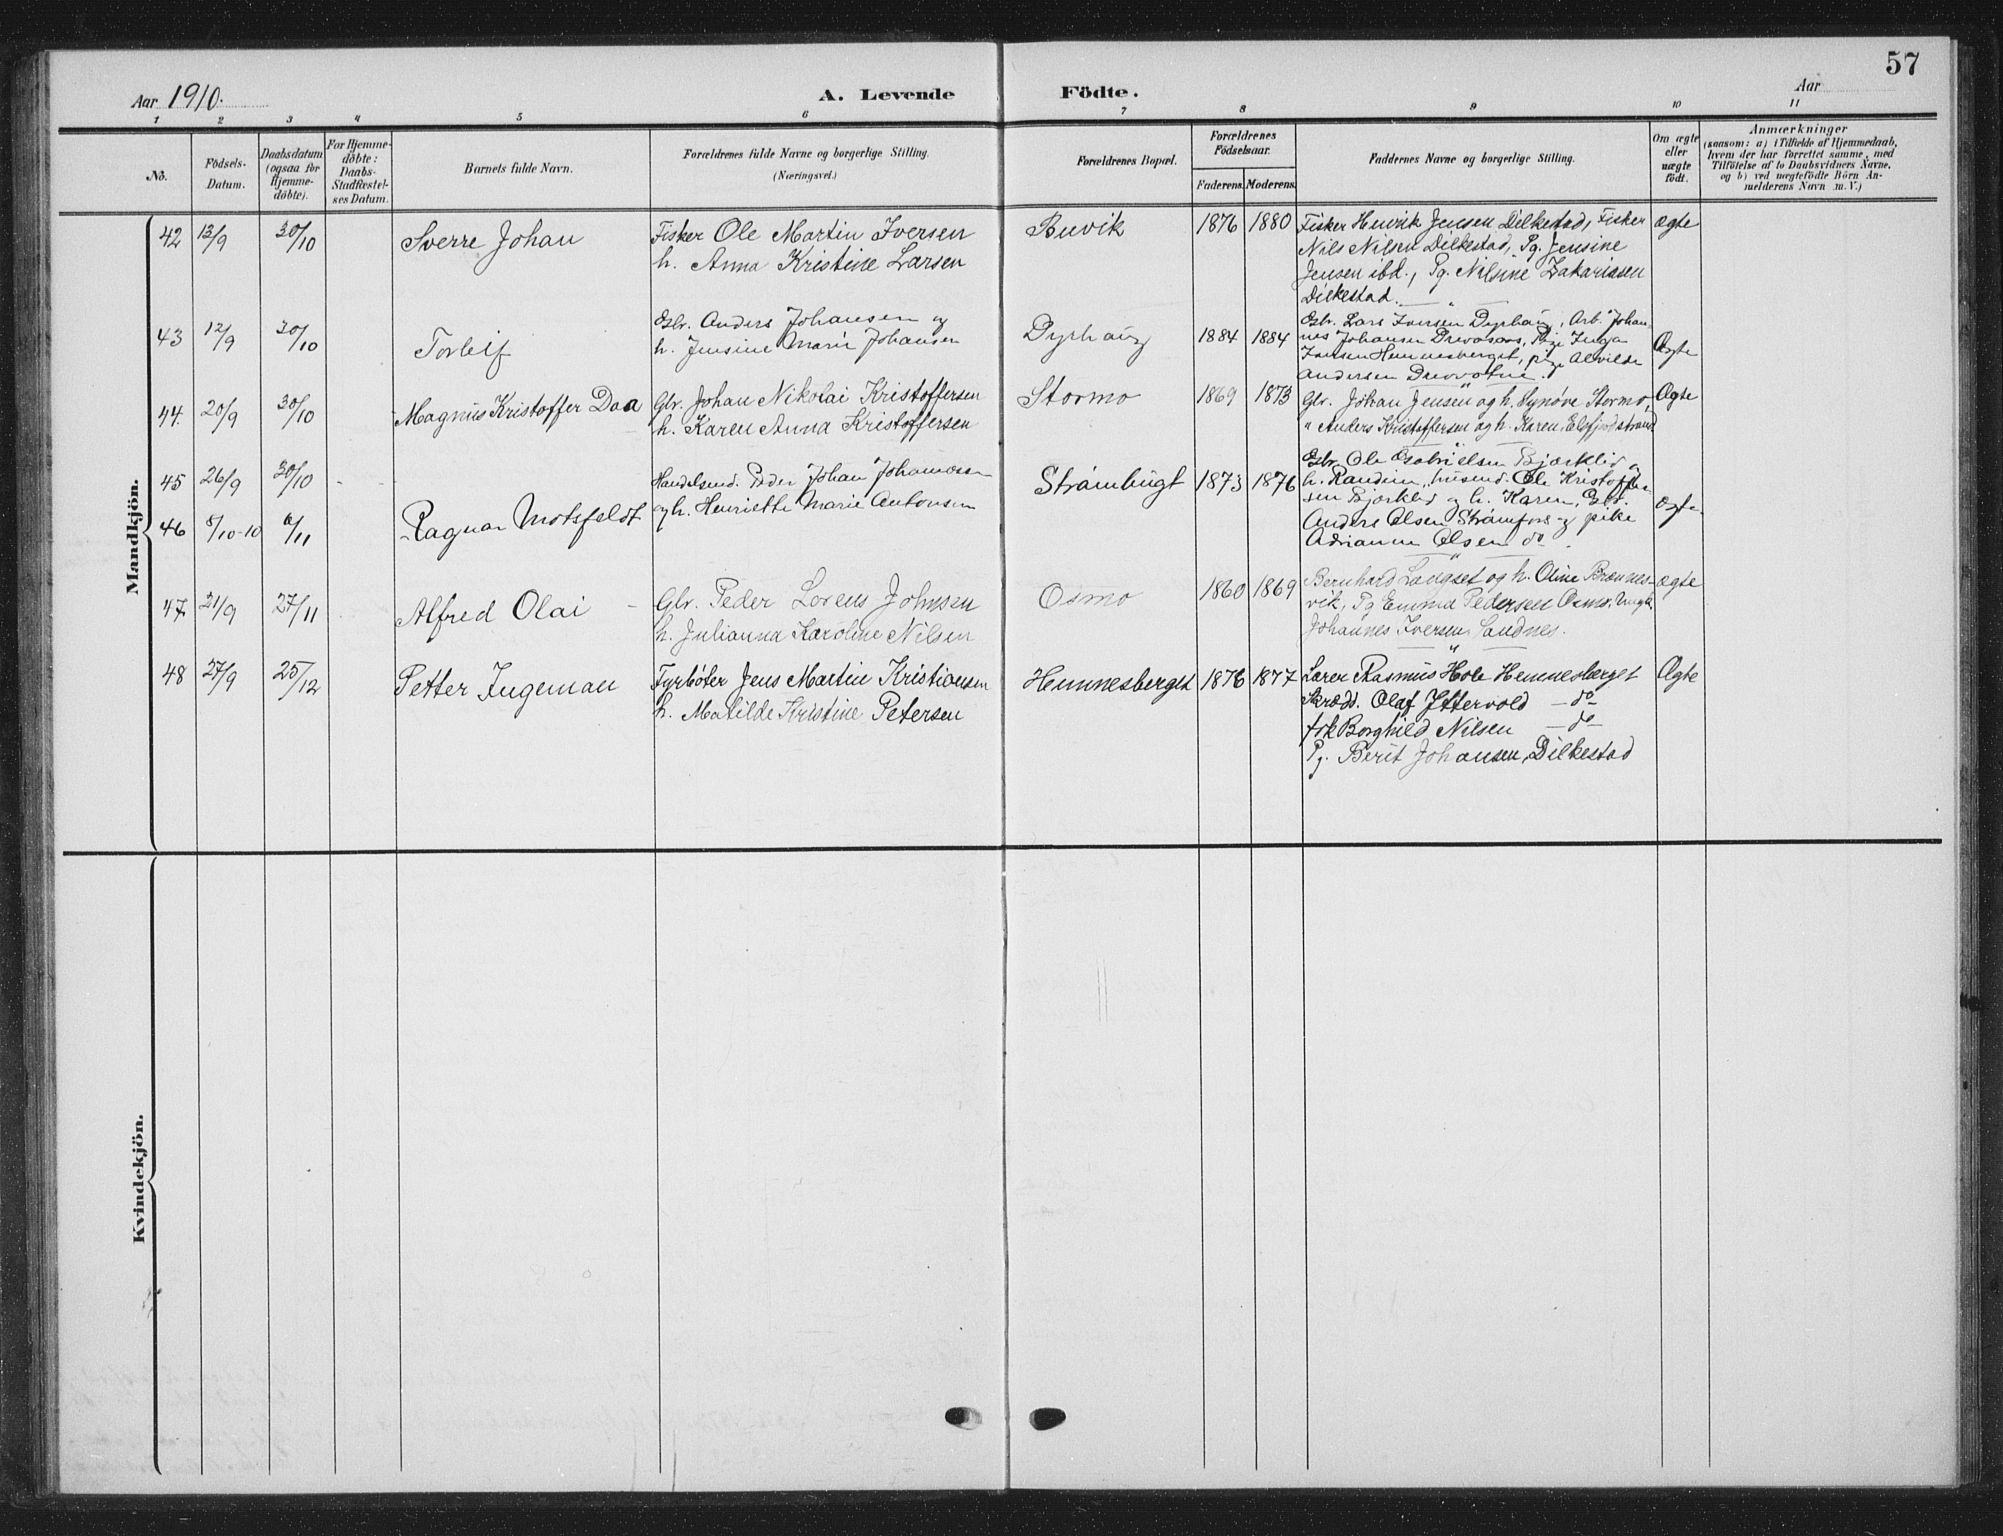 57
Aar 1910. A. Levende Födte. Aar
1 2 3 4 5 6 7 8 9 10 11
No.
Födsels-
Datum.
Daabsdatum
(ogsaa for
Hjemme-
döbte).
For Hjemme-
döbte:
Daabs-
Stadfæstel-
ses Datum.
Barnets fulde Navn.
Forældrenes fulde Navne og borgerlige Stilling.
(Næringsvei.)
Forældrenes Bopæl.
Forældrenes
Födselsaar.
Faderens. Moderens.
Faddernes Navne og borgerlige Stilling.
Om ægte
eller
uægte
födt.
Anmærkninger
(saasom: a) i Tilfælde af Hjemmedaab,
hvem der har forrettet samme, med
Tilföielse af to Daabsvidners Navne,
og b) ved uægtefödte Börn An-
melderens Navn m. V.)
Mandkjön.
42 13/9 30/10 Sverre Johan
Fisker Ole Martin Iversen
h. Anna Kristine Larsen
Buvik 1876 1880
Fisker Henrik Jensen Dilkestad, Fisker
Nils Nilsen Dilkestad, Pg. Jensine
Jensen ibd., Pg. Nilsine Zakariasen
Dilkestad.
ægte
43 12/9 30/10 Torleif
Gbr. Anders Johansen og
h. Jensine Marie Johansen
Dyrhaug 1884 1884
Gbr. Lars Iversen Dyrhaug, Arb. Johan-
nes Johansen
Jensen Hemnesberget, pige Alvilde
Andersen
Ægte
44. 20/9 30/10 Magnus Kristoffer Daa
Gbr. Johan Nikolai Kristoffersen
h. Karen Anna Kristoffersen
Stormo 1869 1873
Gbr. Johan Jensen og h. Synøve Stormo,
" Anders Kristoffersen og h. Karen, Elsfjordstrand
Ægte
45 26/9 30/10 - -
46 8/10-10 6/11 Ragnar Motsfeldt
Handelsmd. Peder Johan Johannessen
og h. Henriette Marie Antonsen
Strømbugt 1873 1876
Gbr. Ole Gabrielsen Bjerklid og
h. Randine, husmd. Ole Kristoffer-
sen Bjerklid og h. Karen, Gbr.
Anders Olsen Strømfors og pike
Adrianne Olsen do.
ægte
47 21/9 27/11 Alfred Olai
Gbr. Peder Lorens Johnsen
h. Julianna Karoline Nilsen
Osmo 1860 1869
Bernhard Langset og h. Oline Brennes-
vik, Pg Emma Pedersen Osmo, Ungk.
Johannes Iversen, Sandnes.
ægte
48 27/9 25/12 Petter Ingeman
Fyrbøter Jens Martin Kristiansen
h. Matilde Kristine Petersen
Hemnesberget 1876 1877
Lærer Rasmus Hole Hemnesberget
Skrædd. Olaf Yttervold — do
frk Borghild Nilsen — do
Pg. Berit Johansen, Dilkestad
Ægte
Kvindekjön.